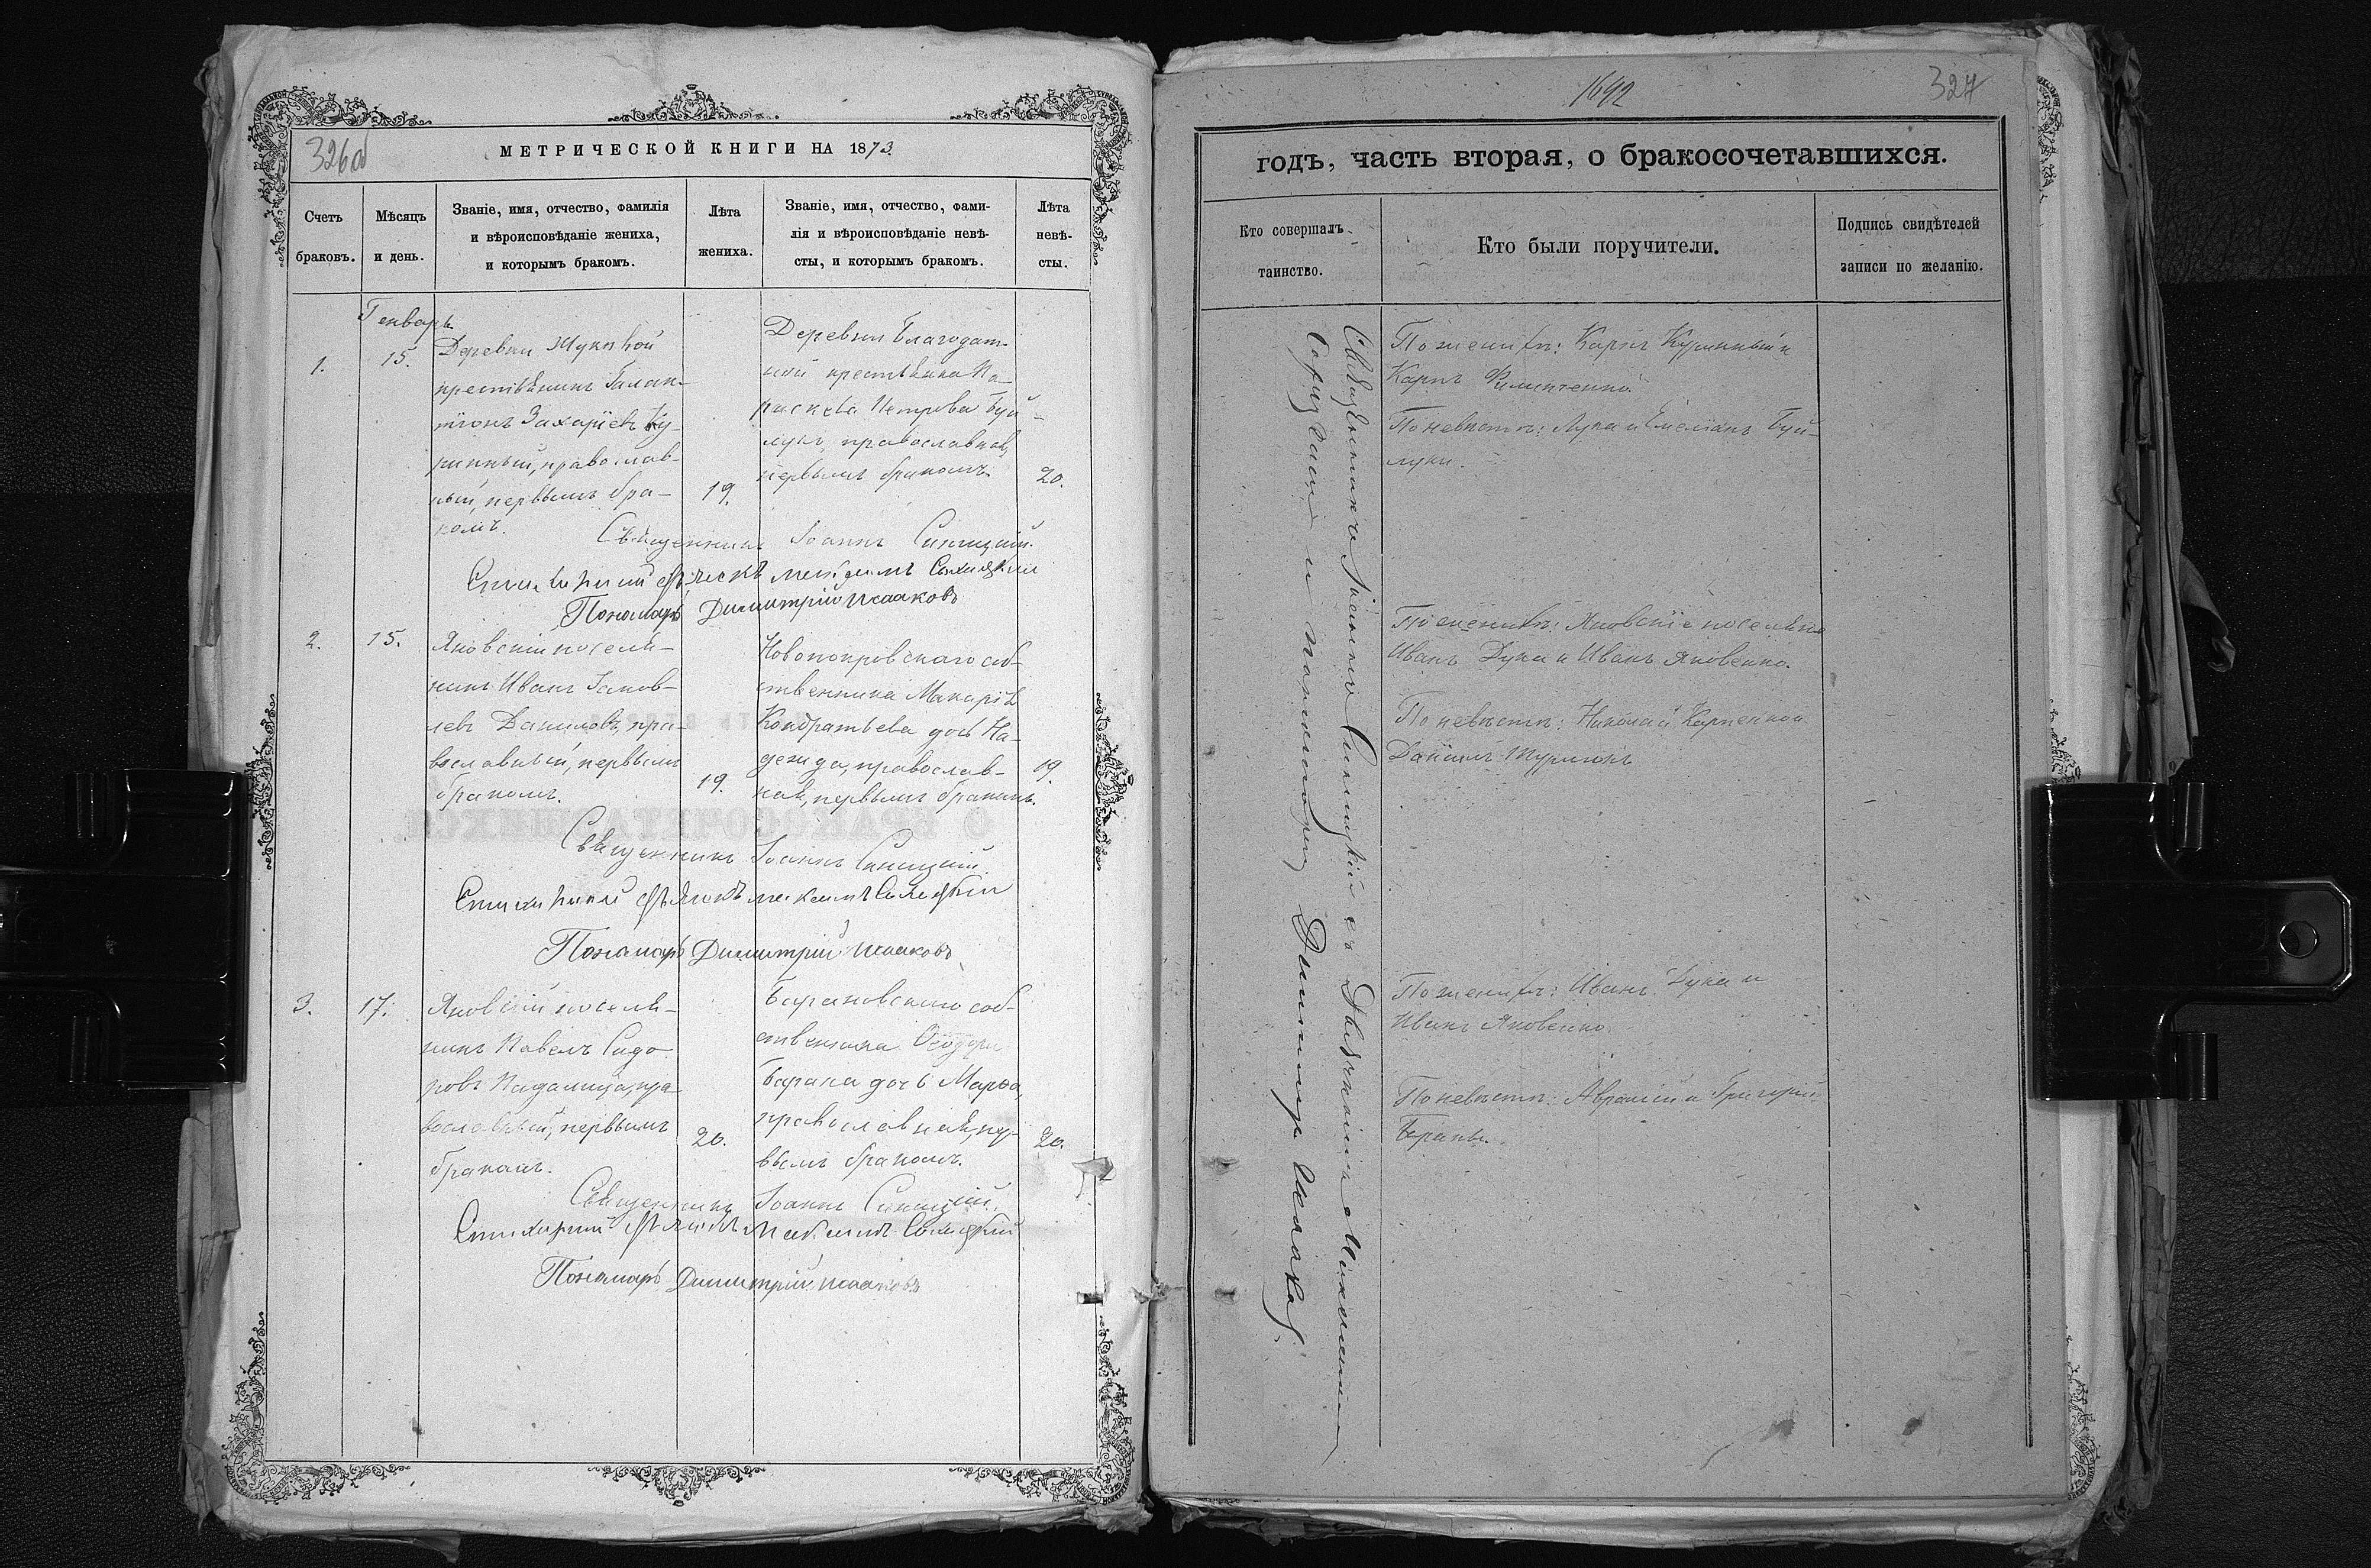 326об
МЕТРИЧЕСКОЙ КНИГИ НА 1873.
Счетъ браковъ.
Мѣсяцъ и день.
Званіе, имя, отчество, фамилія
и вѣроисповѣданіе жениха,
и которымъ бракомъ.
Лѣта
жениха.
Званіе, имя, отчество, фами-
лія и вѣроисповѣданіе невѣ-
сты, и которымъ бракомъ.
Лѣта
невѣ-
сты.
Генварь
1.
15.
Деревни Жуковой
крестьянинъ Галак-
тіонъ Захаріевъ Ку-
ринный, православ-
ный, первымъ бра-
комъ.
19.
Деревни Благодат-
ной крестьянка Па-
раскева Петрова Буй-
лукъ, православная,
первымъ бракомъ.
20.
Священникъ Іоаннъ Синицкій.
Стихарный
Пономарь Димитрій Исааковъ
2.
15.
Яновскій поселя-
нинъ Иванъ Іаков-
левъ Даниловъ, пра-
вославный, первымъ
бракомъ.
19.
Новопокровскаго соб-
ственника Макарія
Кондратьева дочь На-
дежда, православ-
ная, первымъ бракомъ.
19.
Священникъ Іоаннъ Синицкій.
Стихарный
Пономарь Димитрій Исааковъ
3.
17.
Яновскій поселя-
нинъ Павелъ Сидо-
ровъ Падалица, пра-
вославный, первымъ
бракомъ.
20.
Барановскаго соб-
ственника Ѳеодора
Барана дочь Марѳа,
православная, пер-
вымъ бракомъ.
20.
Священникъ Іоаннъ Синицкій.
Стихарный
Пономарь Димитрій Исааковъ
1642
327
годъ, часть вторая, о бракосочетавшихся.
Кто совершалъ
таинство.
Кто были поручители.
Подпись свидѣтелей
записи по желанію.
Священникъ Іоаннъ Синицкій съ
и пономаремъ
По женихѣ: Карпъ Куринный и
Карпъ Филипченко.
По невѣстѣ: Лука и Емеліанъ Буй-
луки.
По женихѣ: Яновскіе поселяне
Иванъ Дука и Иванъ Яковенко.
По невѣстѣ: Николай Карпенко и
Даніилъ
По женихѣ: Иванъ Дука и
Иванъ Яковенко.
По невѣстѣ: Аврамій и Григорій
Бараны.